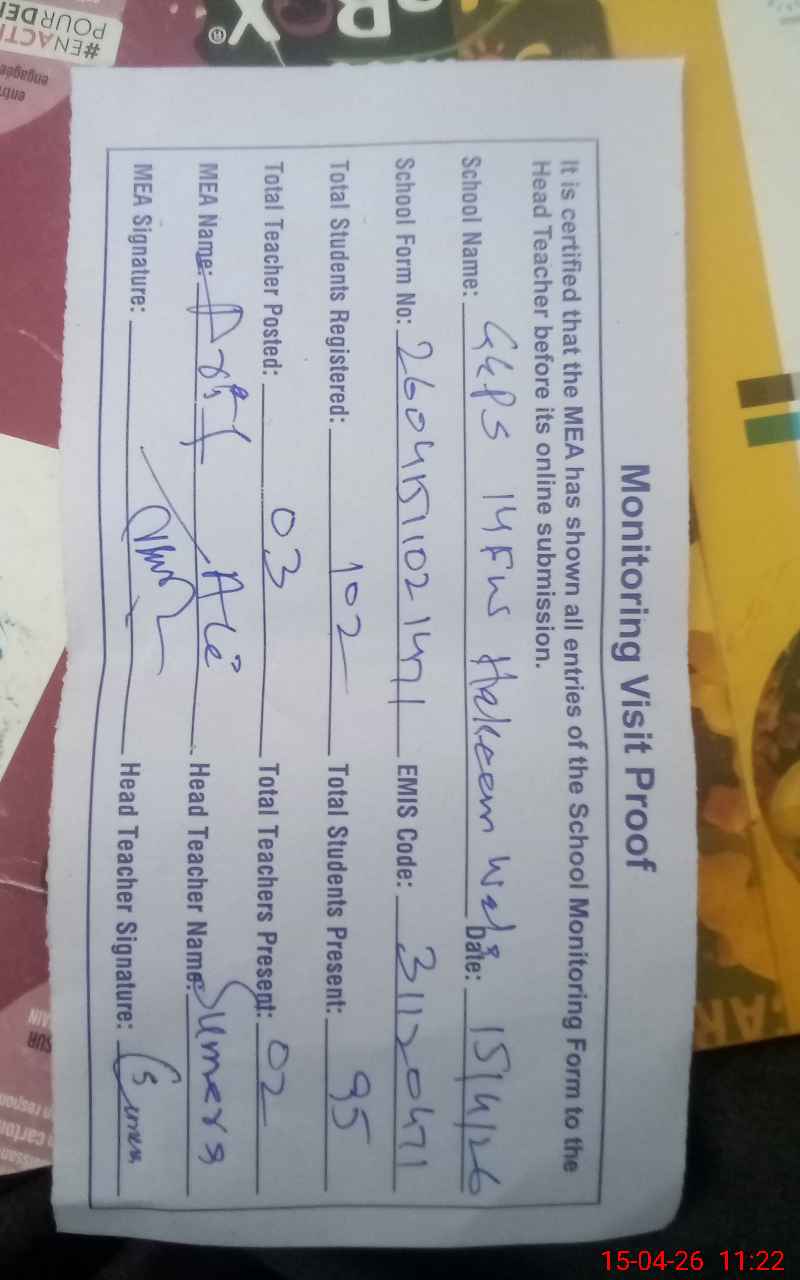 Monitoring Visit Proof
It is certified that the MEA has shown all entries of the School Monitoring Form to the
Head Teacher before its online submission.
School Name: GGPS 14FW Hakeem Wala Date: 15/4/26
School Form No: EMIS Code: 31120471
Total Students Registered: 102 Total Students Present: 95
Total Teacher Posted: 03 Total Teachers Present: 02
MEA Name: Arif Ali Head Teacher Name: Sumera
MEA Signature: Head Teacher Signature: Sumera
#ENACTI
POURDE
engagée
15-04-26 11:22